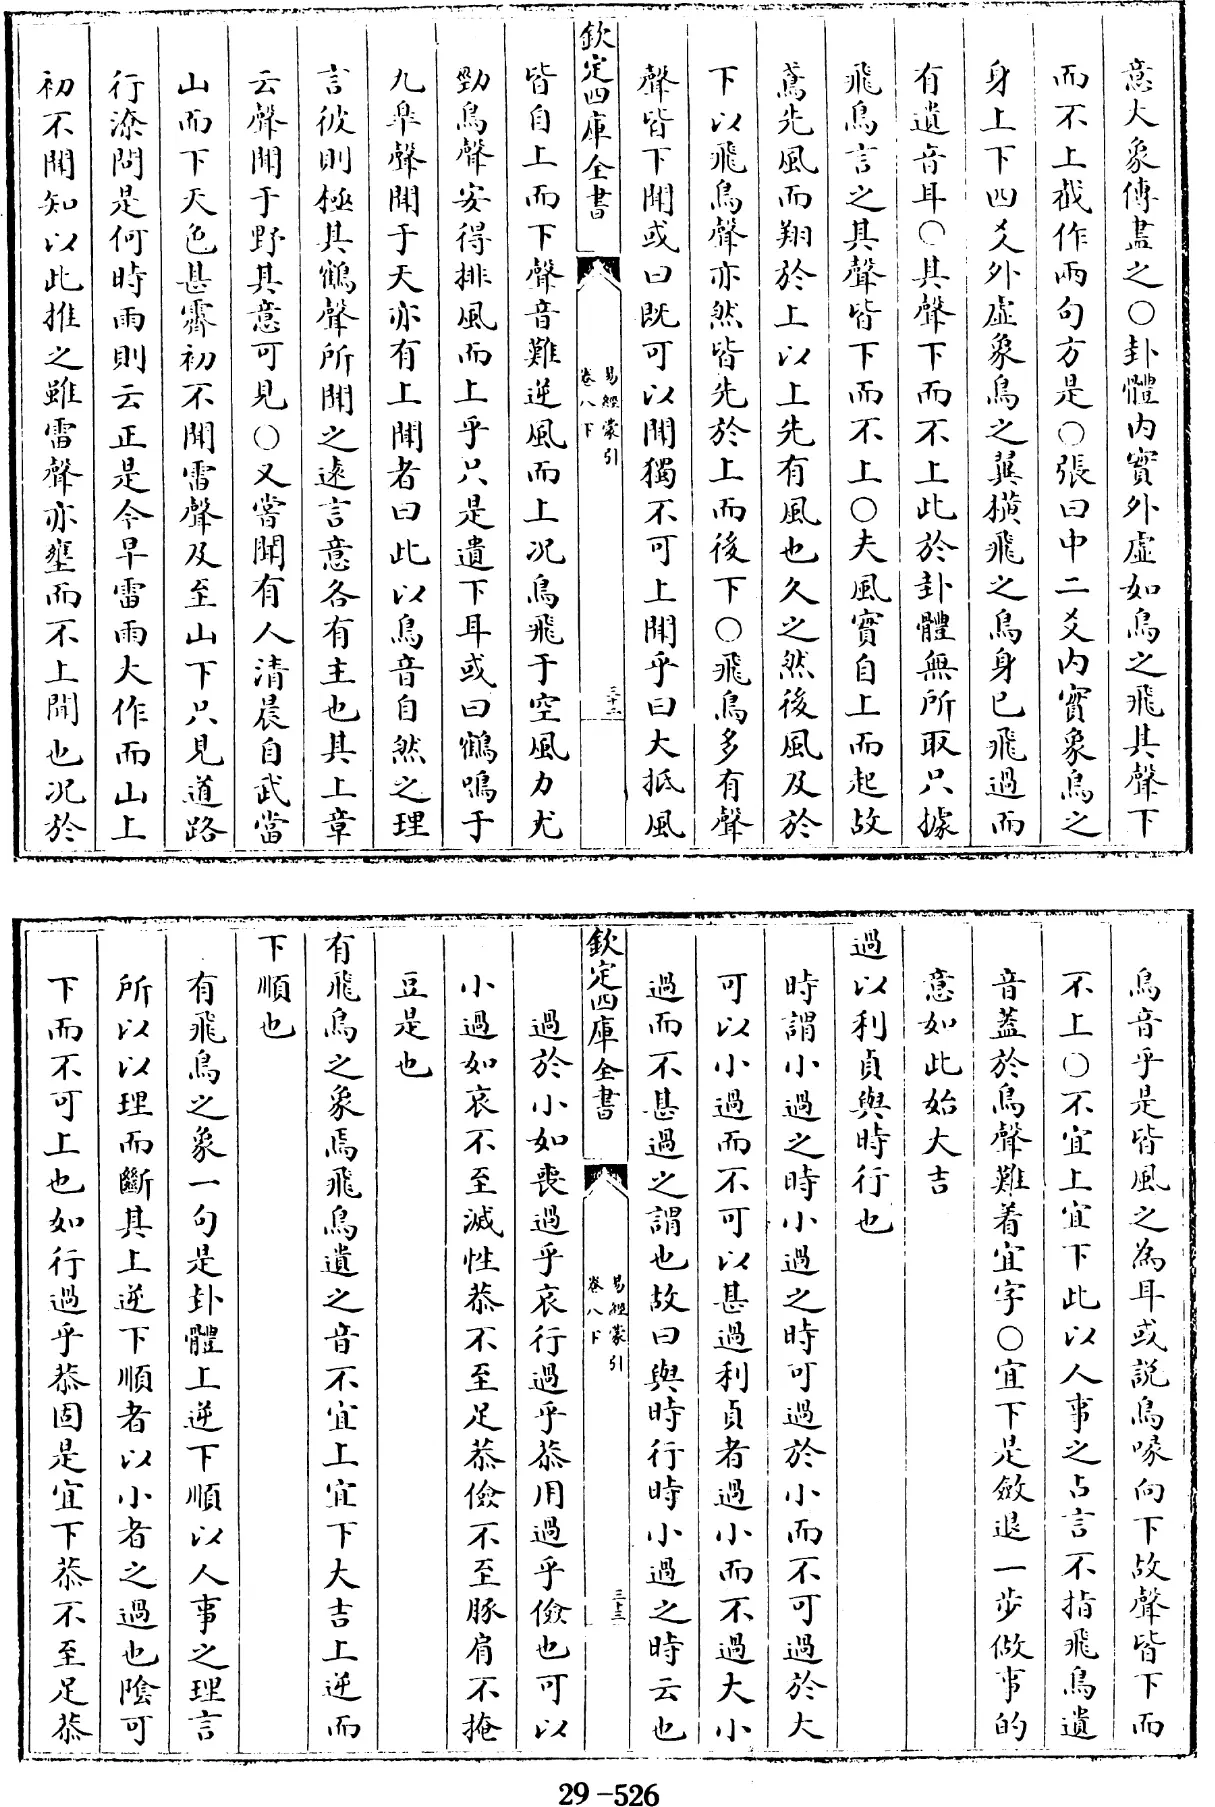 意大象傳盡之○卦體内實外虛如鳥之飛其聲下
而不上截作兩句方是○張曰中二爻内實象鳥之
身上下四爻外虛象鳥之翼横飛之鳥身已飛過而
有遺音耳○其聲下而不上此於卦體無所取只據
飛鳥言之其聲皆下而不上○夫風實自上而起故
鳶先風而翔於上以上先有風也久之然後風及於
下以飛鳥聲亦然皆先於上而後下○飛鳥多有聲
聲皆下聞或曰既可以聞獨不可上聞乎曰大抵風
欽定四庫全書
易經蒙引
卷八下
三十二
皆自上而下聲音難逆風而上况鳥飛于空風力尤
勁鳥聲安得排風而上乎只是遺下耳或曰鶴鳴于
九臯聲聞于天亦有上聞者曰此以鳥音自然之理
言彼則極其鶴聲所聞之遠言意各有主也其上章
云聲聞于野其意可見○又嘗聞有人清晨自武當
山而下天色甚霽初不聞雷聲及至山下只見道路
行潦問是何時雨則云正是今早雷雨大作而山上
初不聞知以此推之雖雷聲亦壅而不上聞也况於
鳥音乎是皆風之為耳或説鳥喙向下故聲皆下而
不上○不宜上宜下此以人事之占言不指飛鳥遺
音葢於鳥聲難着宜字○宜下是斂退一步做事的
意如此始大吉
過以利貞與時行也
時謂小過之時小過之時可過於小而不可過於大
可以小過而不可以甚過利貞者過小而不過大小
過而不甚過之謂也故曰與時行時小過之時云也
欽定四庫全書
易經蒙引
卷八下
三十三
過於小如喪過乎哀行過乎恭用過乎儉也可以
小過如哀不至滅性恭不至足恭儉不至豚肩不掩
豆是也
有飛鳥之象焉飛鳥遺之音不宜上宜下大吉上逆而
下順也
有飛鳥之象一句是卦體上逆下順以人事之理言
所以以理而斷其上逆下順者以小者之過也陰可
下而不可上也如行過乎恭固是宜下恭不至足恭
29-526